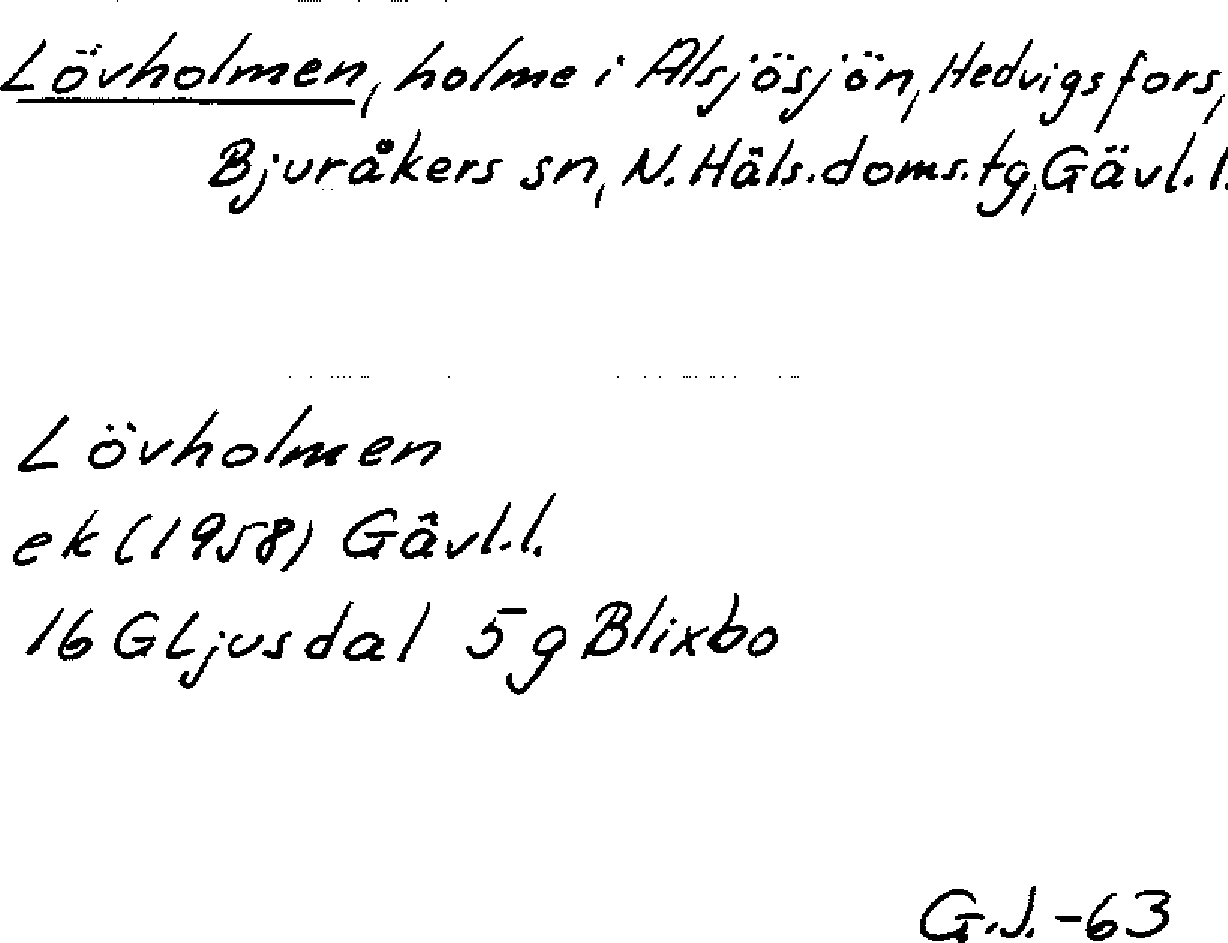 Lövholmen, holme i Alsjösjön, Hedvigsfors,
Bjuråkers sn, N. Häls. doms. tg, Gävl. l.
Lövholmen
ek (1958) Gävl. l.
16 G Ljusdal 5 g Blixbo
G.J. -63